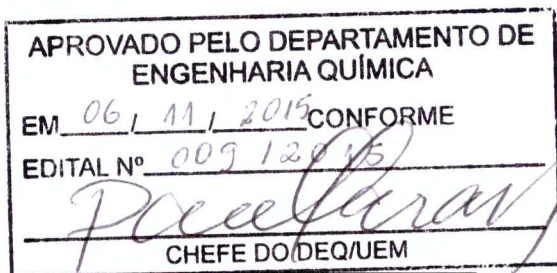 APROVADO PELO DEPARTAMENTO DE
ENGENHARIA QUÍMICA
EM 06 / 11 / 2015 CONFORME
EDITAL Nº 009 / 2015
CHEFE DO DEQ/UEM